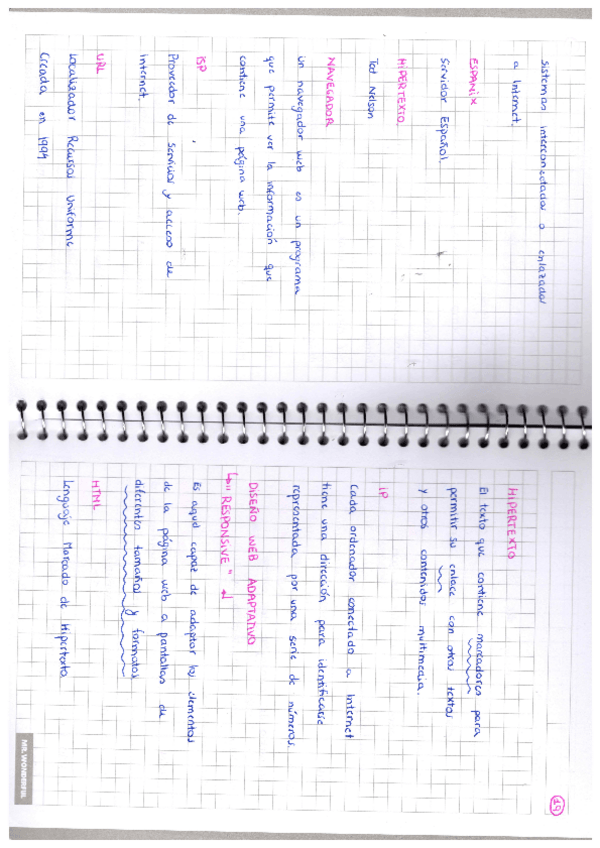 Sistemas interconectados o enlazados
a Internet.
ESPANIX
Servidor Español.
HIPERTEXTO.
Ted Nelson
NAVEGADOR
Un navegador web es un programa
que permite ver la información que
contiene una página web.
ISP
Proveedor de servicios y acceso de
Internet.
URL
Localizador Recursos Uniforme
Creada en 1994
19
HIPERTEXTO
El texto que contiene marcadores para
permitir su enlace con otros textos
y otros contenidos multimedia.
IP
Cada ordenador conectado a Internet
tiene una dirección para identificarse
representada por una serie de números.
DISEÑO WEB ADAPTATIVO
↳"RESPONSIVE" ↲
Es aquel capaz de adaptar los elementos
de la página web a pantallas de
diferentes tamaños y formatos
HTML
Lenguaje Marcado de Hipertexto
MR. WONDERFUL